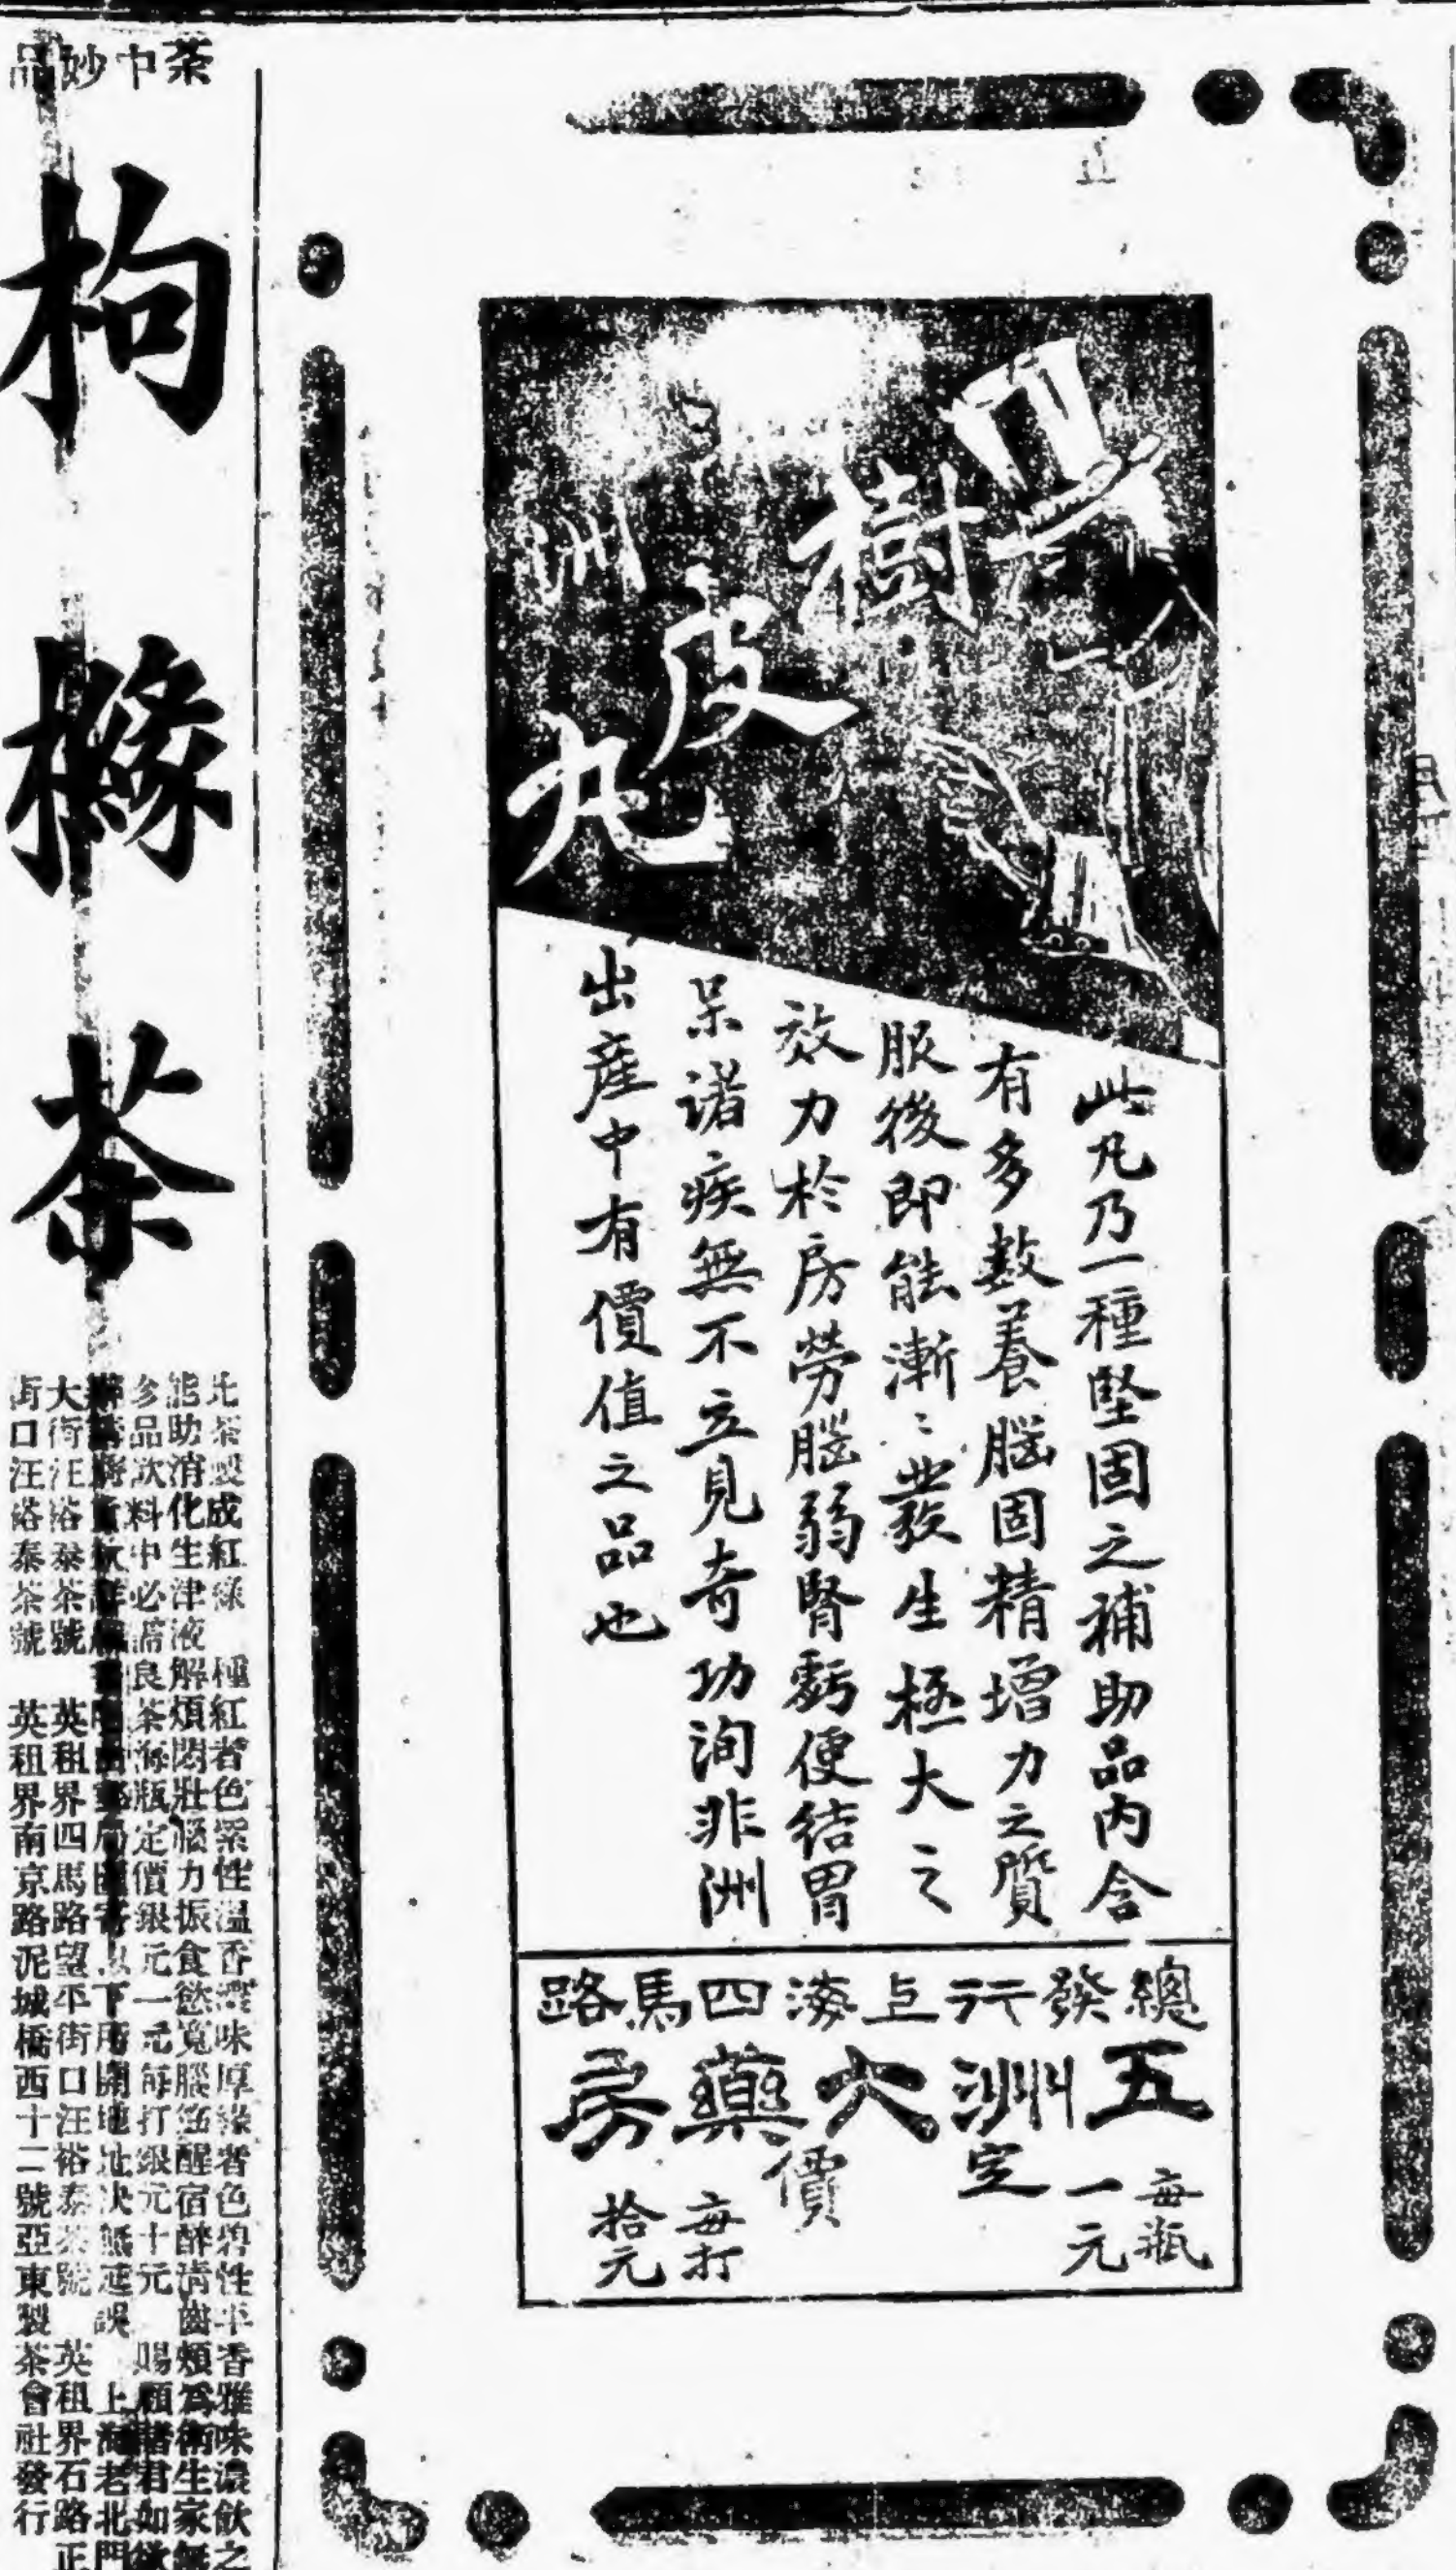 樹皮丸
此丸乃一種堅固之補助品内含
有多数養腦固精增力之質
服後即能漸〻發生極大之
效力於房勞腦弱腎虧便結胃
呆諸疾無不立見奇功洵非洲
出產中有價值之品也
總發行上海四馬路
五洲大藥房
定價
每瓶一元
每打拾元
茶中妙品
枸櫞茶
成紅綠 極紅者色紫性溫香 味厚綠者色碧性平香雅味濃飲之
能助消化生津液解煩悶壯腦力振食慾 腦 醒宿醉清齒頰爲衛生家無
珍品飲料中必需良茶海瓶定價銀元一元每打銀元十元 賜顧諸君如欲
下 開地址决無延誤 上海老北門
大街汪裕泰茶號 英租界四馬路望平街口汪裕泰茶號 英租界石路正
街口汪裕泰茶號 英租界南京路泥城橋西十二號亞東製茶會社發行